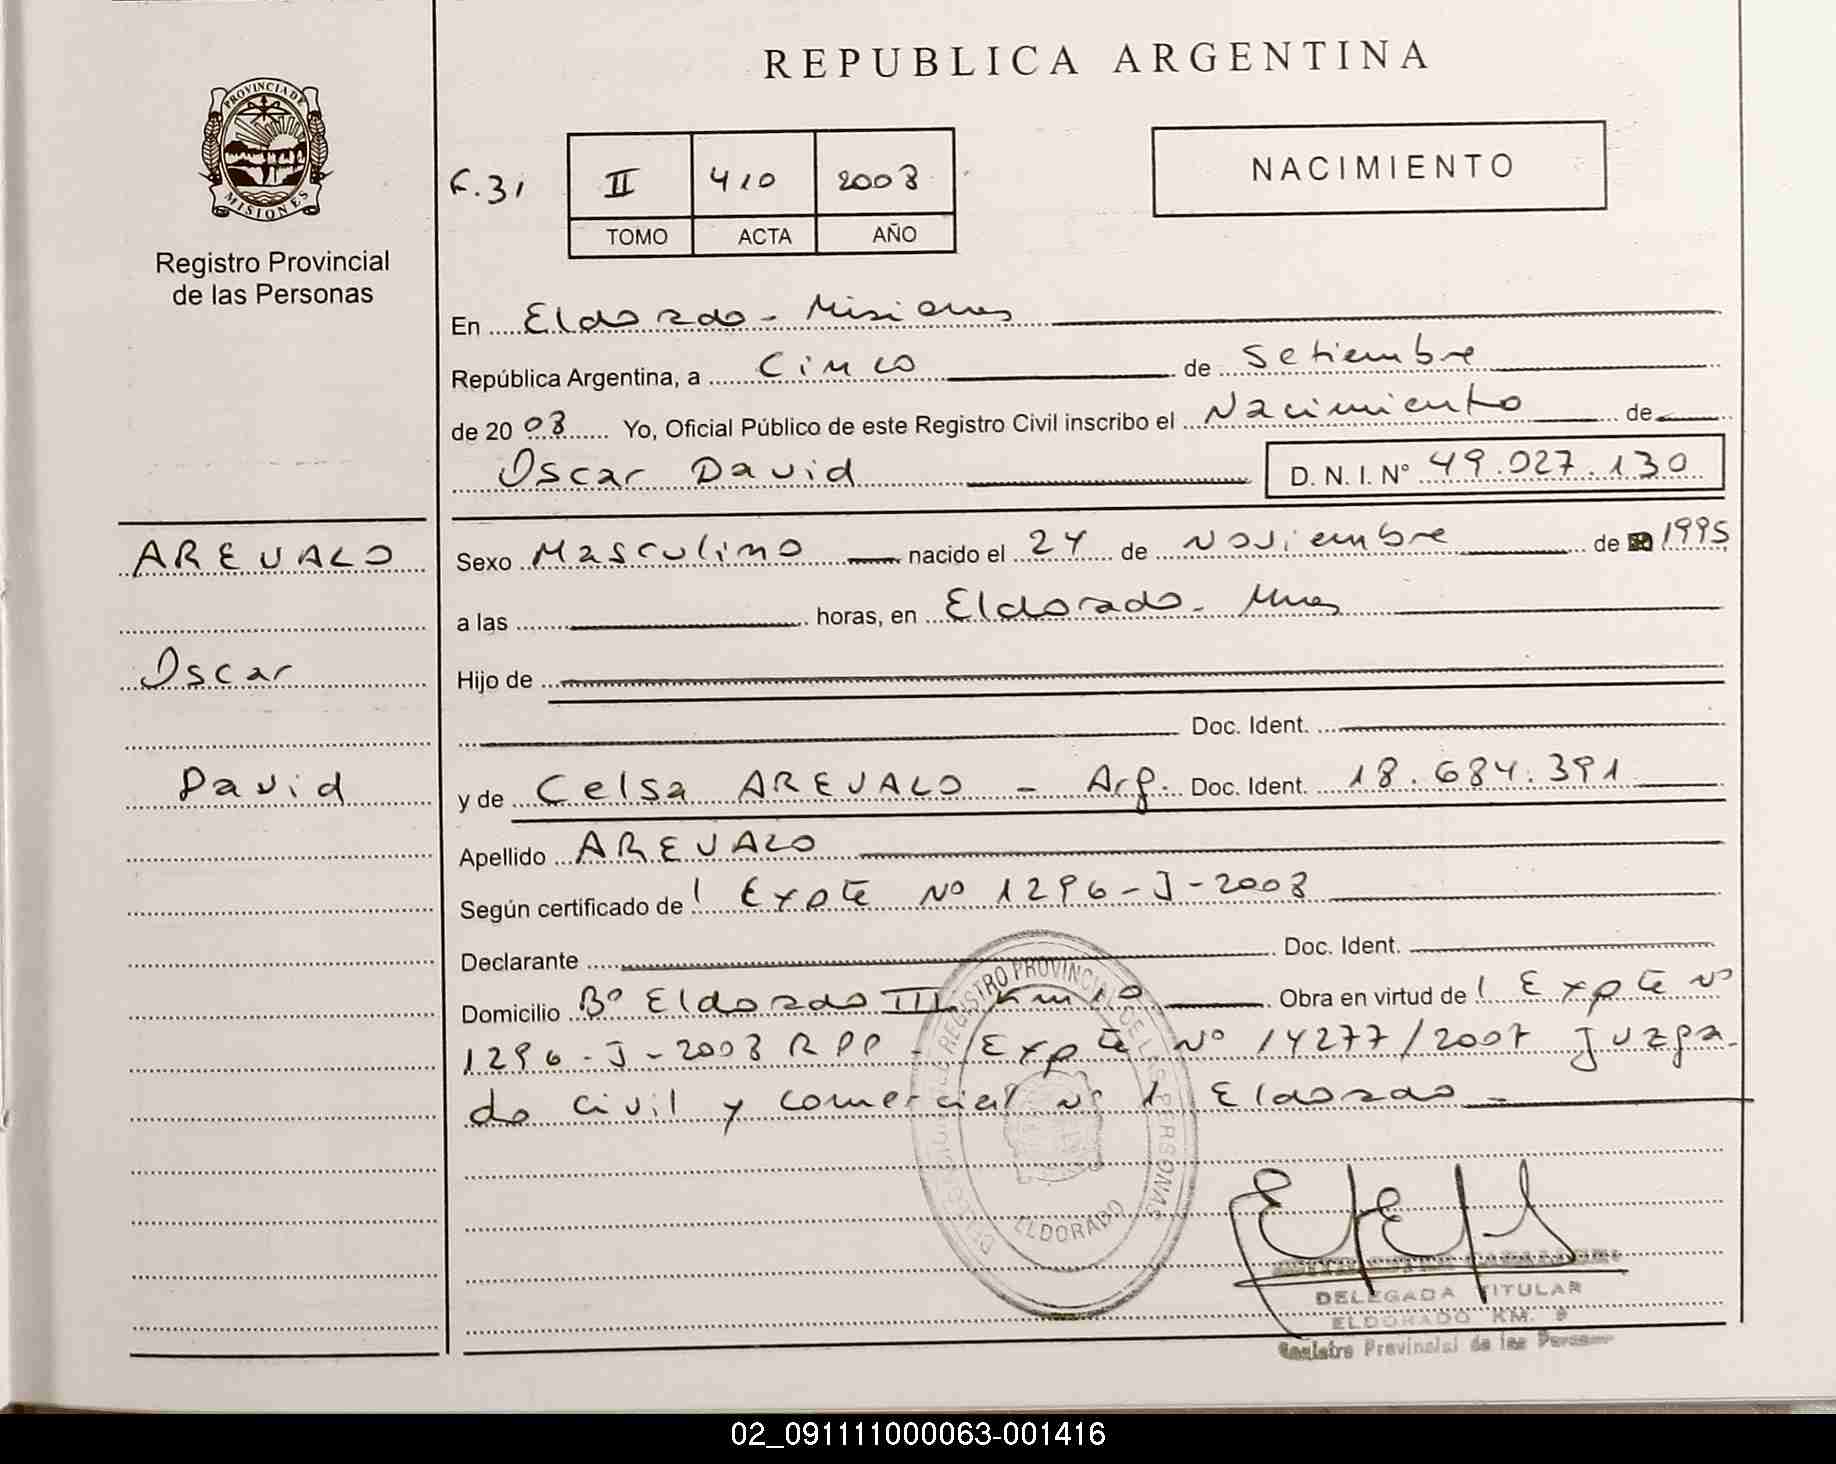 REPUBLICA ARGENTINA
PROVINCIA DE
MISIONES
Registro Provincial
de las Personas
F.31
II 410 2008
TOMO ACTA AÑO
NACIMIENTO
En Eldorado - Misiones
República Argentina, a Cinco de Setiembre
de 2008 Yo, Oficial Público de este Registro Civil inscribo el Nacimiento de
Oscar David D. N. I. N° 49.027.130
AREVALO
Oscar
David
Sexo Masculino nacido el 24 de Noviembre de 1995
a las horas, en Eldorado - Mnes
Hijo de
Doc. Ident.
y de Celsa AREVALO - Arg. Doc. Ident. 18.684.391
Apellido AREVALO
Según certificado de Expte Nº 1296-J-2008
Declarante Doc. Ident.
Domicilio Bº Eldorado III Km 10 Obra en virtud de Expte Nº
1296-J-2008 RPP - Expte Nº 14277/2007 Juzga-
do Civil y Comercial Nº 1 Eldorado -
REGISTRO PROVINCIAL DE LAS PERSONAS
ELDORADO
DELEGADA TITULAR
ELDORADO KM. 9
Registro Provincial de las Personas
02_091111000063-001416